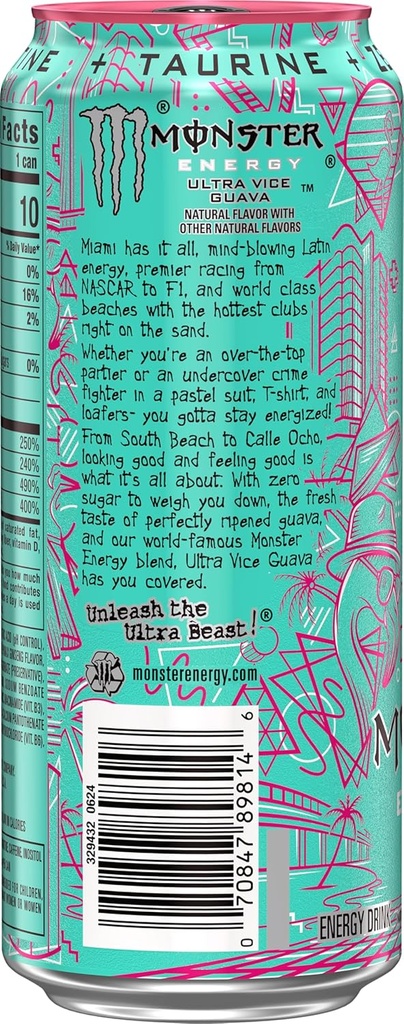 NE + TAURINE +
Facts
1 can
10
% Daily Value*
0%
16%
2%
0%
250%
240%
490%
400%
saturated fat,
vitamin D,
you how much
contributes
a day is used
MONSTER
ENERGY
®
®
ULTRA VICE
GUAVA
™
NATURAL FLAVOR WITH
OTHER NATURAL FLAVORS
Miami has it all, mind-blowing Latin
energy, premier racing from
NASCAR to F1, and world class
beaches with the hottest clubs
right on the sand.
Whether you're an over-the-top
partier or an undercover crime
fighter in a pastel suit, T-shirt, and
loafers- you gotta stay energized!
From South Beach to Calle Ocho,
looking good and feeling good is
what it's all about. With zero
sugar to weigh you down, the fresh
taste of perfectly ripened guava,
and our world-famous Monster
Energy blend, Ultra Vice Guava
has you covered.
Unleash the
Ultra Beast!®
monsterenergy.com
329432 0624
0 70847 89814 6
ENERGY DRINK